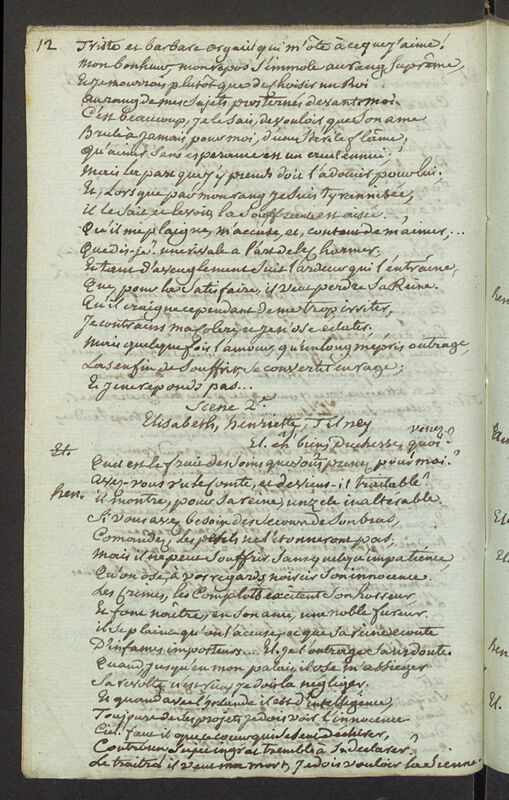 12 Triste et barbare orgueil qui m'ôte à ce que j'aime!
mon bonheur, mon repos s'immole au rang suprême,
Et je mourrois plutôt que de choisir un Roi
au rang de mes sujets prosternés devant moi.
C'est beaucoup, je le sais, de vouloir que son ame
Brule à jamais, pour moi, d'une stérile flâme,
Qu'aimer sans esperance est un cruel ennui;
mais la part que j'y prends doit l'adoucir pour lui.
Et, Lorsque par mon rang je suis tyrannisée,
il le sait, il le voit, la souffrance est aisée.
Qu'il me plaigne, m'accuse, et, content de m'aimer, ...
Que dis-je? une rivale a l'art de le charmer.
Et tant d'aveuglement suit l'ardeur qui l'entraine,
Que, pour la satisfaire, il veut perdre sa Reine.
Qu'il craigne cependant de me trop irriter,
Je contrains ma colere et je n'ose éclater.
mais quelque fois l'amour, qu'un long mépris outrage,
Las enfin de souffrir, se convertit en rage;
Et je ne reponds pas...
Scene 2e
Elisabeth, henriette, Tilney
El. eh bien, Duchesse, quoi? venez?
El. Quel est le fruit des soins que vous prenez pour moi?
Avez-vous vu le Comte, et devient-il traitable?
hen. il montre, pour sa reine, un zèle inaltérable
Si vous avez besoin du secours de son bras,
Comandez, les périls ne l'étonneront pas;
mais il ne peut souffrir sans quelque impatience
Qu'on ose à vos regards noircir son innocence.
Les Crimes, les Complots excitent son horreur
Et font naître, en son ame, une noble fureur.
il se plaint qu'on l'accuse, et que sa reine écoute
D'infames imposteurs... El. je l'outrage sans doute
Quand jusqu'en mon palais, il ose m'assieger
Sa revolte n'est rien, je dois la negliger.
Et quand avec l'irlande il est d'intelligence,
Toujours de ses projets je dois voir l'innocence
Ciel! faut-il que le cœur qui se sent déchirer,
Contre un sujet ingrat tremble à se declarer?
Le traître! il veut ma mort, je dois vouloir la sienne.